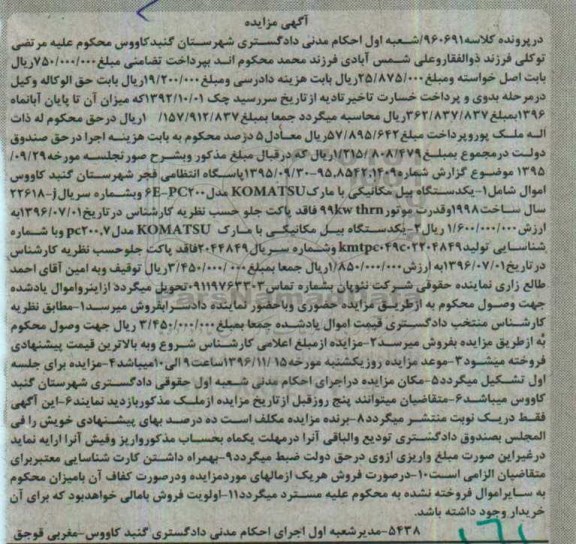 آگهی مزایده
درپرونده کلاسه۹۶۰۶۹۱/شعبه اول احکام مدنی دادگستری شهرستان گنبدکاووس محکوم علیه مرتضی
توکلی فرزند ذوالفقاروعلی شمس آبادی فرزند محمد محکوم اند بپرداخت تضامنی مبلغ۷۵۰/۰۰۰/۰۰۰ریال
بابت اصل خواسته ومبلغ۲۵/۸۷۵/۰۰۰ریال بابت هزینه دادرسی ومبلغ۱۹/۲۰۰/۰۰۰ریال بابت حق الوکاله وکیل
درمرحله بدوی و پرداخت خسارت تاخیرتادیه ازتاریخ سررسید چک ۱۳۹۲/۱۰/۰۱که میزان آن تا پایان آبانماه
۱۳۹۶بمبلغ۳۶۲/۸۳۷/۸۳۷ریال محاسبه میگردد جمعا بمبلغ۱/۱۵۷/۹۱۲/۸۳۷ ریال درحق محکوم له ذات
اله ملک پوروپرداخت مبلغ۵۷/۸۹۵/۶۴۲ریال معادل۵ درصد محکوم به بابت هزینه اجرا درحق صندوق
دولت درمجموع بمبلغ۱/۲۱۵/۸۰۸/۴۷۹ریال که درقبال مبلغ مذکور وبشرح صورتجلسه مورخه۰۹/۲۹/
۱۳۹۵ موضوع گزارش شماره۹۵،۸۵۴۲،۱۴۰۹-۱۳۹۵/۰۹/۳۰پاسگاه انتظامی فجر شهرستان گنبد کاووس
اموال شامل۱-یکدستگاه بیل مکانیکی با مارکKOMATSU مدل۶E-PC۲۰۰ وبشماره سریالj-۲۲۶۱۸
سال ساخت۱۹۹۸وقدرت موتور۹۹kw thrn فاقد پاکت جلو حسب نظریه کارشناس درتاریخ۱۳۹۶/۰۷/۰۱به
ارزش۱/۶۰۰/۰۰۰/۰۰۰ریال۲-یکدستگاه بیل مکانیکی با مارک KOMATSU مدل۷،pc۲۰۰ وبا شماره
شناسایی تولیدkmtpc۰۴۹c۰۲۲۰۴۸۴۹ وشماره سریال۲۰۴۴۸۴۹فاقد پاکت جلوحسب نظریه کارشناس
درتاریخ۱۳۹۶/۰۷/۰۱به ارزش۱/۸۵۰/۰۰۰/۰۰۰ریال جمعا بمبلغ۳/۴۵۰/۰۰۰/۰۰۰ریال توقیف وبه امین آقای احمد
طالع زاری نماینده حقوقی شرکت نئوپان بشماره تماس۰۹۱۱۹۷۶۳۳۰۳تحویل میگردد ازاینرواموال یادشده
جهت وصول محکوم به ازطریق مزایده حضوری وباحضور نماینده دادسرابفروش میرسد۱-مطابق نظریه
کارشناس منتخب دادگستری قیمت اموال یادشده جمعا بمبلغ۳/۴۵۰/۰۰۰/۰۰۰ ریال جهت وصول محکوم
به ازطریق مزایده بفروش میرسد۲-مزایده ازمبلغ اعلامی کارشناس شروع وبه بالاترین قیمت پیشنهادی
فروخته میشود۳-موعد مزایده روزیکشنبه مورخه۱۳۹۶/۱۱/۱۵ساعت۹ الی۱۰میباشد۴-مزایده برای جلسه
اول تشکیل میگردد۵-مکان مزایده دراجرای احکام مدنی شعبه اول حقوقی دادگستری شهرستان گنبد
کاووس میباشد۶-متقاضیان میتوانند پنج روزقبل ازتاریخ مزایده ازملک مذکوربازدید نمایند۶-این آگهی
فقط دریک نوبت منتشر میگردد۸-برنده مزایده مکلف است ده درصد بهای پیشنهادی خویش را فی
المجلس بصندوق دادگستری تودیع والباقی آنرا درمهلت یکماه بحساب مذکورواریز وفیش آنرا ارایه نماید
درغیراین صورت مبلغ واریزی ازوی درحق دولت ضبط میگردد۹-بهمراه داشتن کارت شناسایی معتبربرای
متقاضیان الزامی است۱۰-درصورت فروش هریک ازمالهای موردمزایده ودرصورت کفاف آن بامیزان محکوم
به سایراموال فروخته نشده به محکوم علیه مسترد میگردد۱۱-اولویت فروش بامالی خواهدبود که برای آن
خریدار وجود داشته باشد.
۵۴۳۸-مدیرشعبه اول اجرای احکام مدنی دادگستری گنبد کاووس-مغربی قوجق